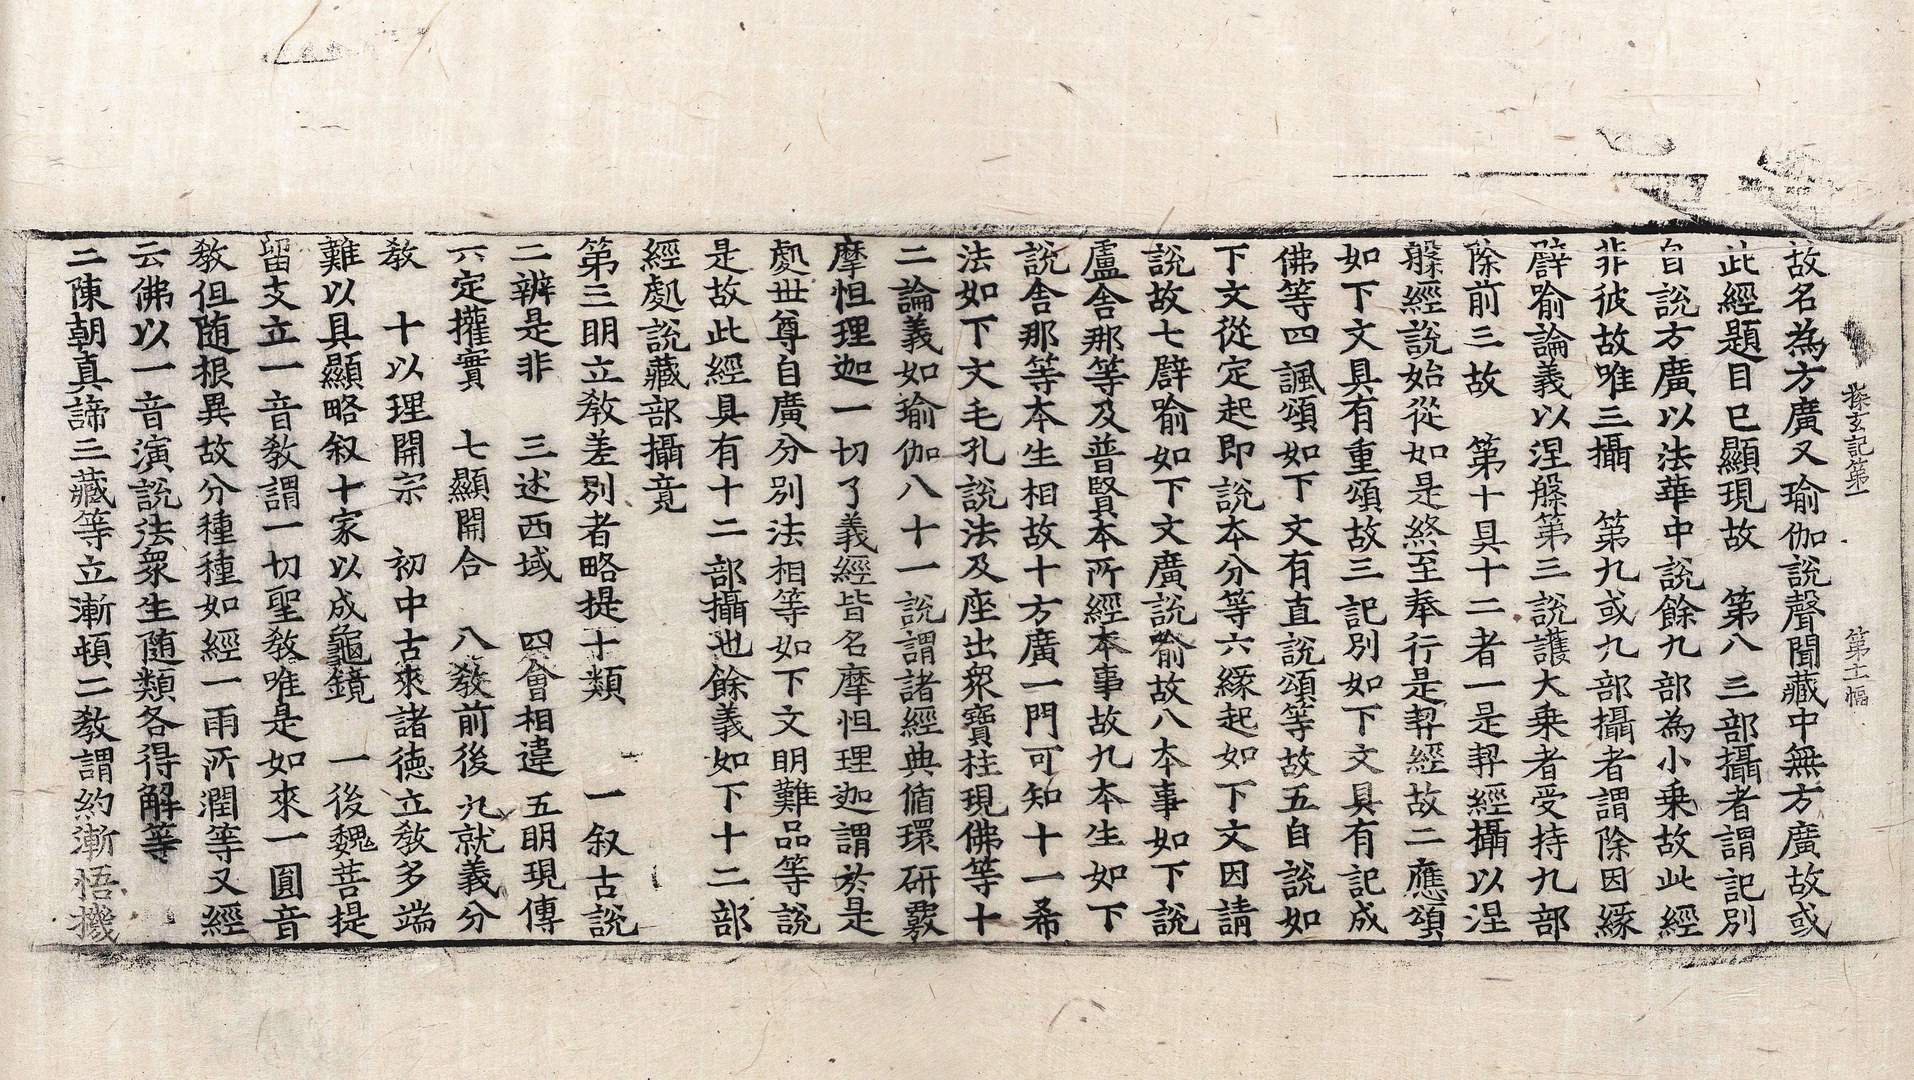 探玄記第一 第十一幅
故名為方廣又瑜伽說聲聞藏中無方廣故或
此經題目已顯現故 第八三部攝者謂記別
自說方廣以法華中說餘九部為小乗故此經
非彼故唯三攝 第九或九部攝者謂除因緣
辟喻論義以涅槃第三說護大乗者受持九部
除前三故 第十具十二者一是契經攝以涅
槃經說始從如是終至奉行是契經故二應頌
如下文具有重頌故三記別如下文具有記成
佛等四諷頌如下文有直說頌等故五自說如
下文從定起即說本分等六緣起如下文因請
說故七辟喻如下文廣說喻故八本事如下說
盧舍那等及普賢本所經本事故九本生如下
說舍那等本生相故十方廣一門可知十一希
法如下文毛孔說法及座出衆寶柱現佛等十
二論義如瑜伽八十一說謂諸經典循環研覈
摩怛理迦一切了義經皆名摩怛理迦謂於是
處世尊自廣分別法相等如下文明難品等說
是故此經具有十二部攝也餘義如下十二部
經處說藏部攝竟
第三明立教差別者略提十類 一叙古說
二辨是非 三述西域 四會相違 五明現傳
六定權實 七顯開合 八教前後 九就義分
教 十以理開宗 初中古來諸徳立教多端
難以具顯略叙十家以成龜鏡 一後魏菩提
留支立一音教謂一切聖教唯是如來一圓音
教但随根異故分種種如經一雨所潤等又經
云佛以一音演說法衆生随類各得解等
二陳朝真諦三藏等立漸頓二教謂約漸悟機